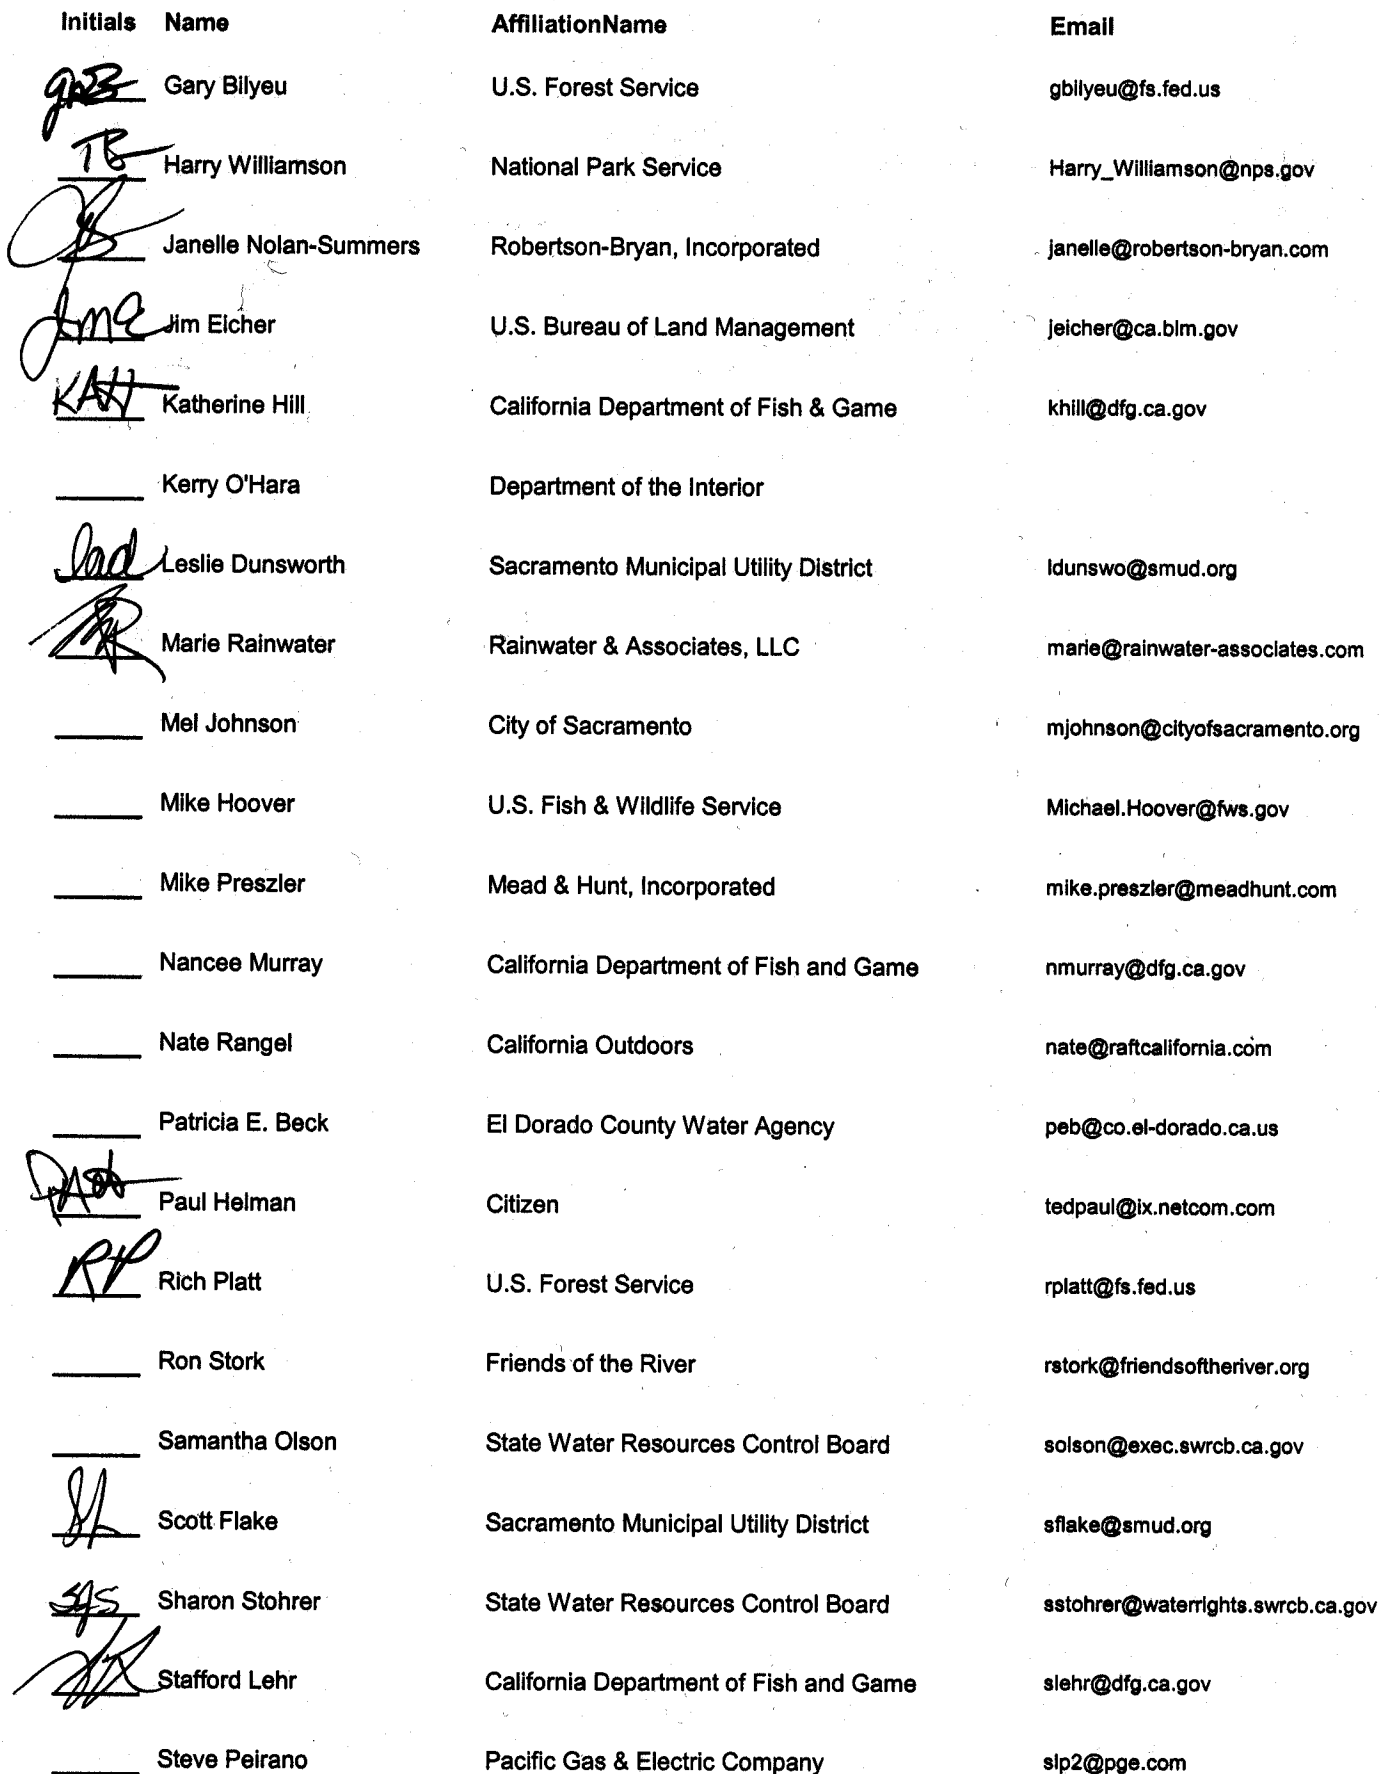 Initials Name AffiliationName Email
Gary Bilyeu U.S. Forest Service gbilyeu@fs.fed.us
TB Harry Williamson National Park Service Harry_Williamson@nps.gov
Janelle Nolan-Summers Robertson-Bryan, Incorporated janelle@robertson-bryan.com
Jme Jim Eicher U.S. Bureau of Land Management jeicher@ca.blm.gov
KAH Katherine Hill California Department of Fish & Game khill@dfg.ca.gov
Kerry O'Hara Department of the Interior
lad Leslie Dunsworth Sacramento Municipal Utility District ldunswo@smud.org
Marie Rainwater Rainwater & Associates, LLC marie@rainwater-associates.com
Mel Johnson City of Sacramento mjohnson@cityofsacramento.org
Mike Hoover U.S. Fish & Wildlife Service Michael.Hoover@fws.gov
Mike Preszler Mead & Hunt, Incorporated mike.preszler@meadhunt.com
Nancee Murray California Department of Fish and Game nmurray@dfg.ca.gov
Nate Rangel California Outdoors nate@raftcalifornia.com
Patricia E. Beck El Dorado County Water Agency peb@co.el-dorado.ca.us
Paul Helman Citizen tedpaul@ix.netcom.com
RP Rich Platt U.S. Forest Service rplatt@fs.fed.us
Ron Stork Friends of the River rstork@friendsoftheriver.org
Samantha Olson State Water Resources Control Board solson@exec.swrcb.ca.gov
Scott Flake Sacramento Municipal Utility District sflake@smud.org
sgs Sharon Stohrer State Water Resources Control Board sstohrer@waterrights.swrcb.ca.gov
Stafford Lehr California Department of Fish and Game slehr@dfg.ca.gov
Steve Peirano Pacific Gas & Electric Company slp2@pge.com